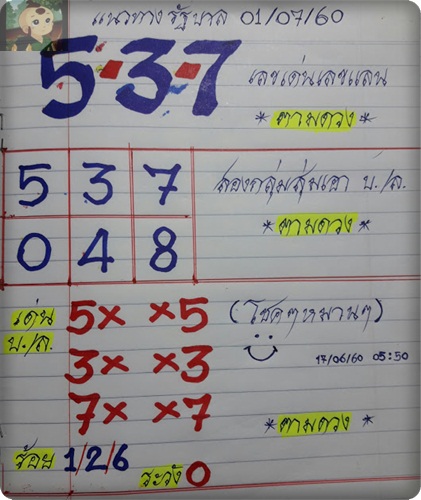 แนวทาง รัฐบาล 01/07/60
5·3·7
เลขเด่นเลขแลน
* ตามดวง *
5 3 7
สองกลุ่มสุ่มเอา บ./ล.
0 4 8
* ตามดวง *
เด่น 5× ×5 (โชคๆหมานๆ)
บ./ล. 3× ×3
17/06/60 05:50
7× ×7
* ตามดวง *
ร้อย 1/2/6 ระวัง 0